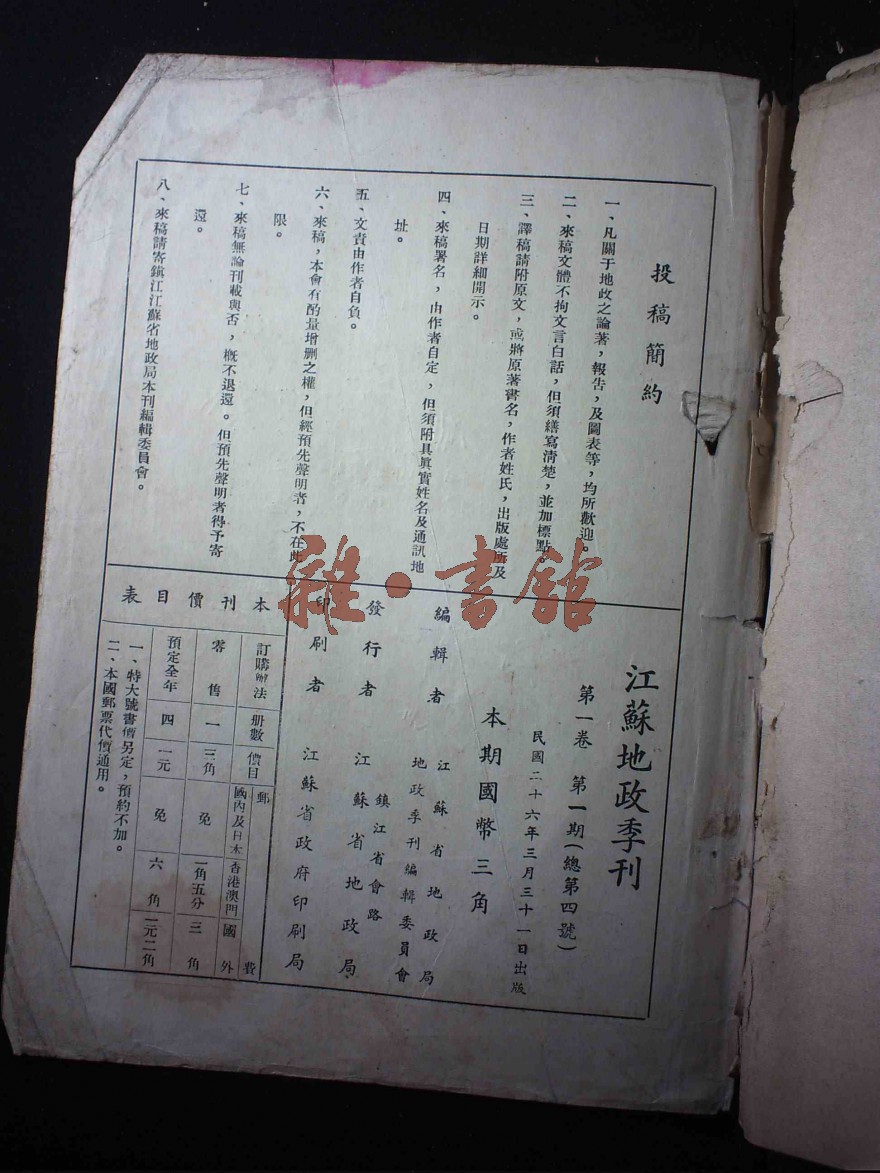 投稿簡約
一、凡關于地政之論著，報告，及圖表等，均所歡迎。
二、來稿文體不拘文言白話，但須繕寫清楚，並加標點。
三、譯稿請附原文，或將原著書名，作者姓氏，出版處所及
日期詳細開示。
四、來稿署名，由作者自定，但須附具眞實姓名及通訊地
址。
五、文責由作者自負。
六、來稿，本會有酌量增删之權，但經預先聲明者，不在此
限。
七、來稿無論刊載與否，概不退還。但預先聲明者得予寄
還。
八、來稿請寄鎮江江蘇省地政局本刊編輯委員會。
江蘇地政季刊
第一卷 第一期（總第四號）
民國二十六年三月三十一日出版
本期國幣三角
編輯者 江蘇省地政局
地政季刊編輯委員會
發行者 鎮江省會路
江蘇省地政局
印刷者 江蘇省政府印刷局
本刊價目表
訂購辦法 册數 價目 郵費 國內及日本 香港澳門 國外
零售 一 三角 免 一角五分 三角
預定全年 四 一元 免 六角 一元二角
一、特大號書價另定，預約不加。
二、本國郵票代價通用。
雜·書館